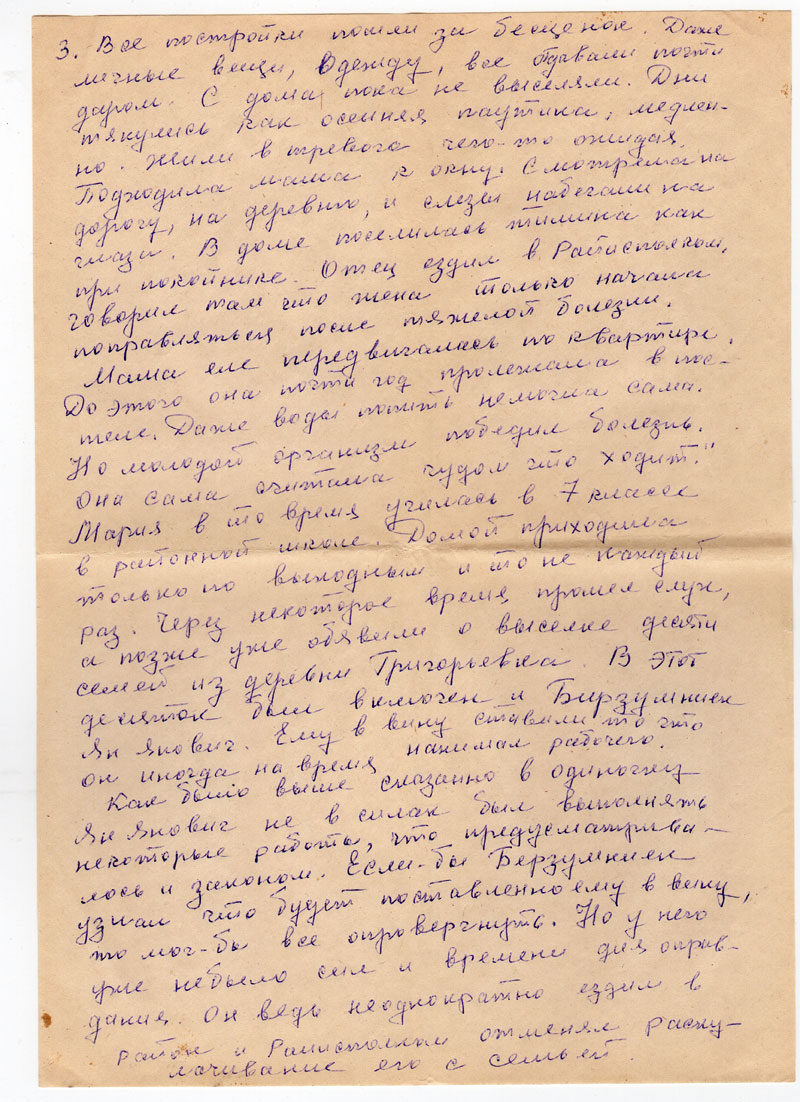 3. Все постройки пошли за бесценок. Даже
личные вещи, одежду, все отдавали почти
даром. С дома пока не выселяли. Дни
тянулись как осенняя паутина, медлен-
но. Жили в тревоге чего-то ожидая.
Подходила мама к окну. Смотрела на
дорогу, на деревню, и слезы набегали на
глаза. В доме поселилась тишина как
при покойнике. Отец ездил в Райисполком,
говорил там что жена только начала
поправляться после тяжелой болезни.
Мама еле передвигалась по квартире.
До этого она почти год пролежала в пос-
теле. Даже воды попить немогла сама.
Но молодой организм победил болезнь.
Она сама считала чудом что ходит."
Мария в то время училась в 7 классе
в районной школе. Домой приходила
только по выходным и то не каждый
раз. Через некоторое время прошел слух,
а позже уже обявили о выселке десяти
семей из деревни Григорьевка. В этот
десяток был включен и Бирзумниек
Ян Янович. Ему в вину ставили то что
он иногда на время нанимал рабочего.
Как было выше сказанно в одиночку
Ян Янович не в силах был выполнять
некоторые работы, что предусматрива-
лось и законом. Если-бы Берзумниек
узнал что будет поставленно ему в вину,
то мог-бы все опровергнуть. Но у него
уже небыло сил и времени для оправ-
дания. Он ведь неоднократно ездил в
район и Райисполком отменял раску-
лачивание его с семьей.